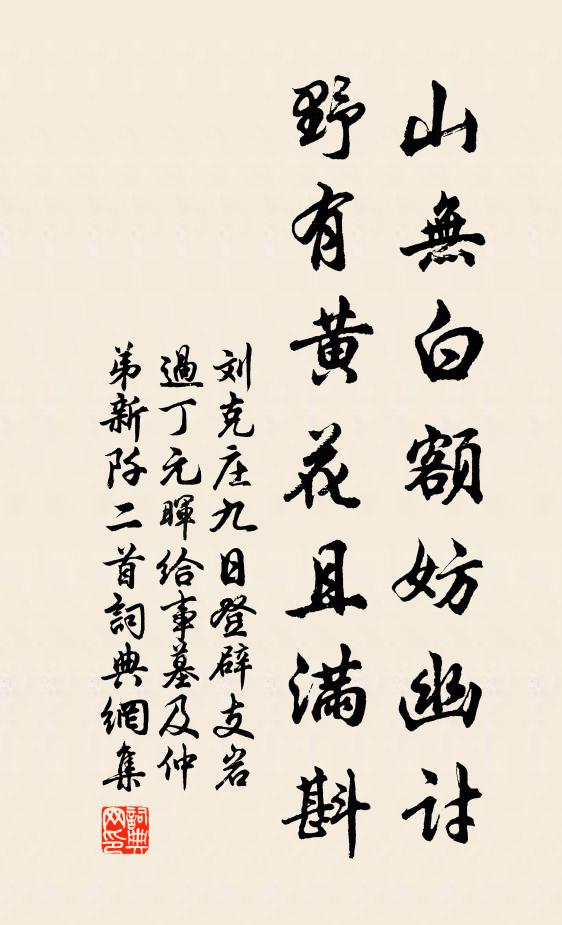 山無白額妨幽討
野有黄花且滿斟
刘克庄九日登辟支岩
過丁元暉給事墓及仲
弟新阡二首詞典網集
詞典网印